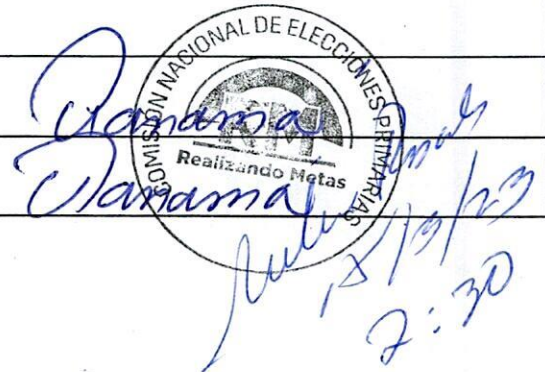 COMISIÓN NACIONAL DE ELECCIONES PRIMARIAS
RM
Realizando Metas
Panamá
Panamá
7:30